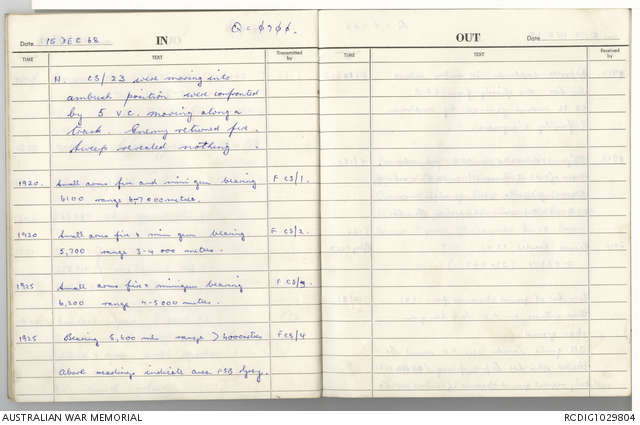 Date 15 DEC 68 IN
TIME TEXT Transmitted by
N. CS/23 were moving into
ambush position were confronted
by 5 V.C. moving along a
track. Enemy returned fire.
Sweep revealed nothing.
1920. Small arms fire and mini gun bearing F CS/1.
6100 range 6-7000 metres.
1920 Small arms fire & mini gun bearing F CS/2.
5,700 range 3-4 000 metres.
1925 Small arms fire & minigun bearing F CS/3.
6,200 range 4-5000 metres.
1925 Bearing 5,600 mils range > 4000 metres F CS/4
Above readings indicate area FSB
OUT Date
TIME TEXT Received by
AUSTRALIAN WAR MEMORIAL RCDIG1029804